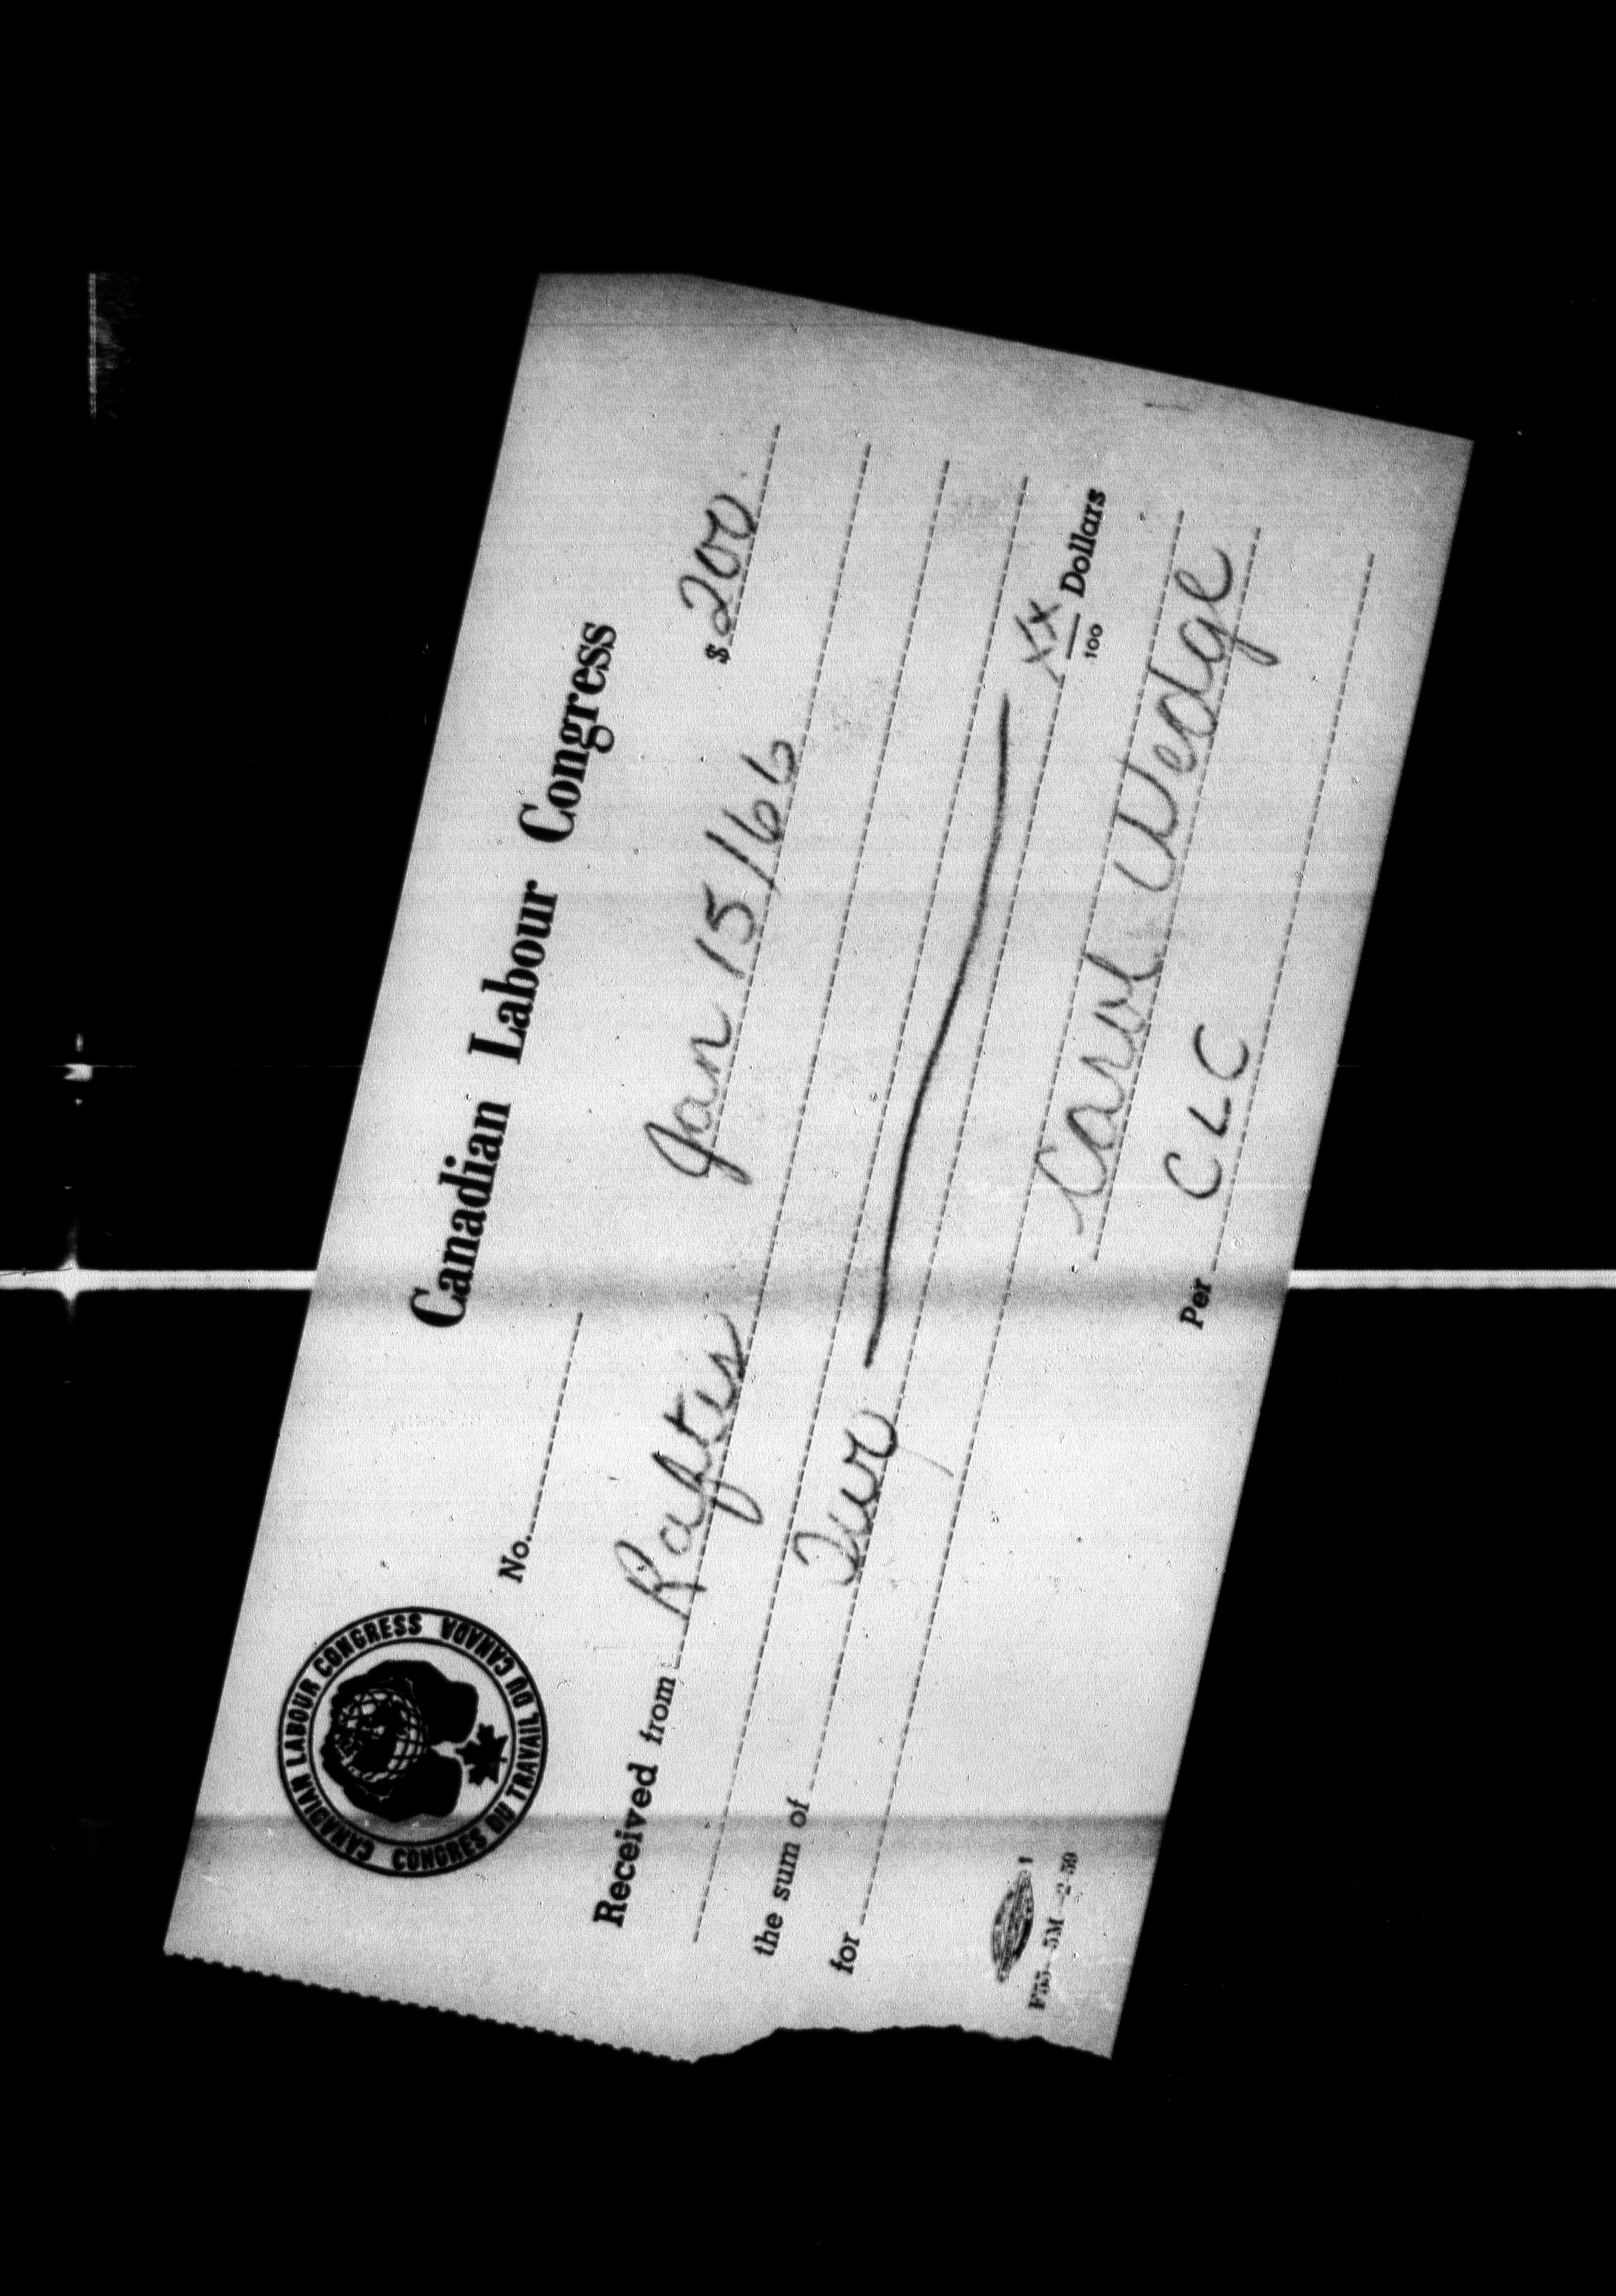 CANADIAN LABOUR CONGRESS
CONGRÈS DU TRAVAIL DU CANADA
Canadian Labour Congress
No.
Received from Raftis Jan 15/66 $ 200.
the sum of Two XX/100 Dollars
for
Carol Wedge
Per CLC
F55-5M-2-59